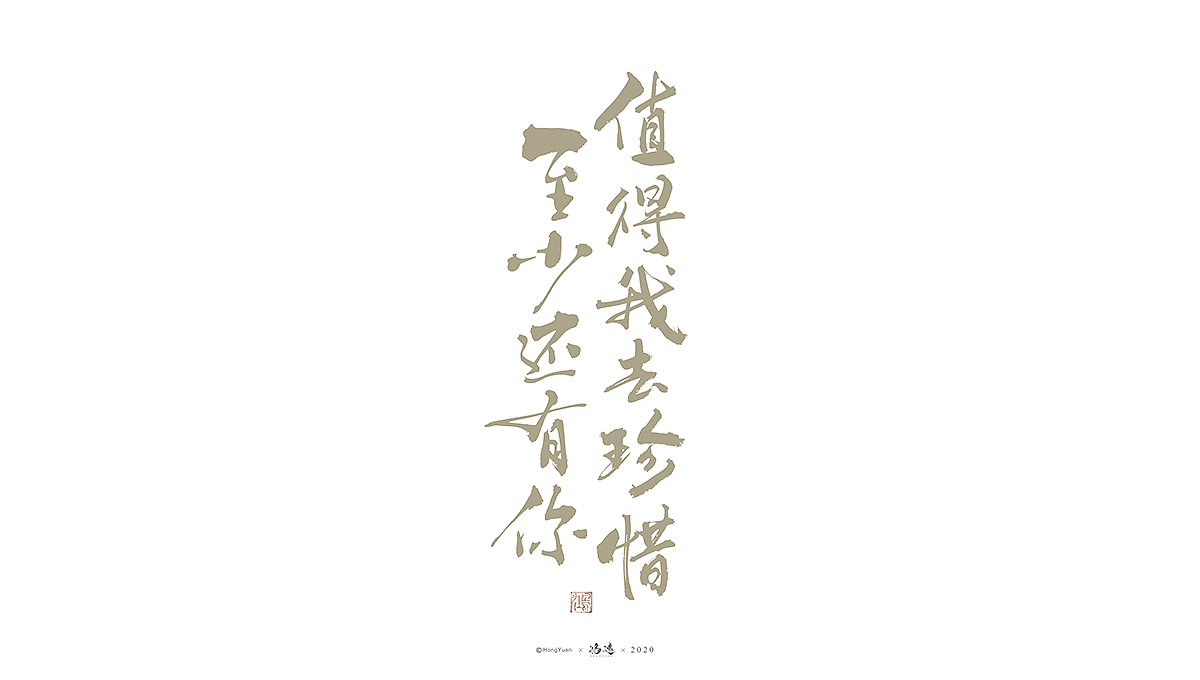 至少还有你
值得我去珍惜
©HongYuan × 鸿远 × 2020